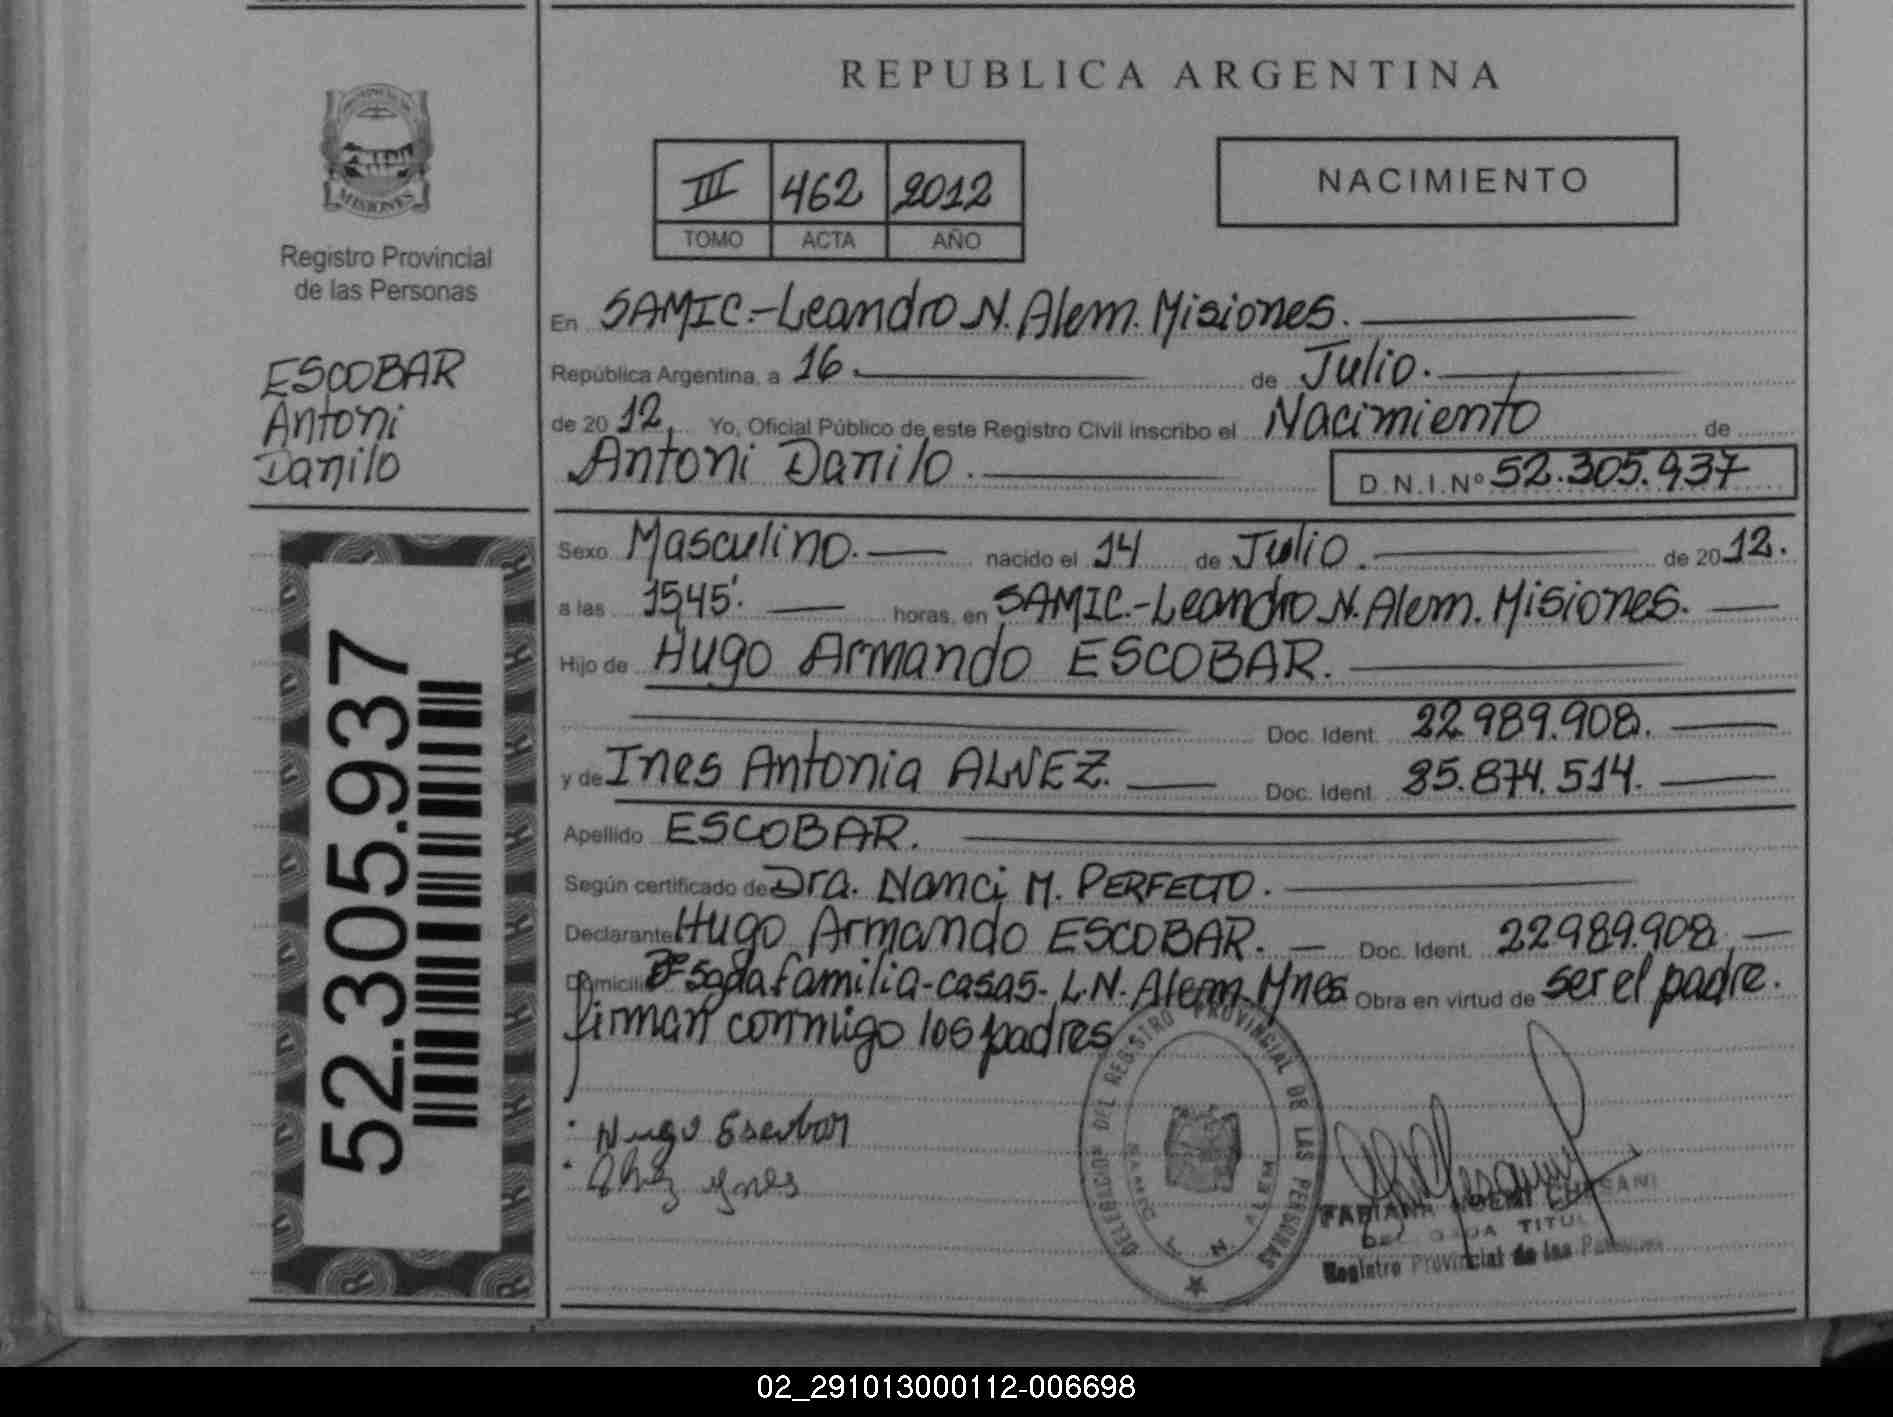 REPUBLICA ARGENTINA
PROVINCIA DE
MISIONES
Registro Provincial
de las Personas
ESCOBAR
Antoni
Danilo
52.305.937
III 462 2012
TOMO ACTA AÑO
NACIMIENTO
En SAMIC.-Leandro N. Alem. Misiones.
República Argentina, a 16. de Julio.
de 2012. Yo, Oficial Público de este Registro Civil inscribo el Nacimiento de
Antoni Danilo. D.N.I.Nº 52.305.937
Sexo Masculino. nacido el 14 de Julio. de 2012.
a las 15,45'. horas, en SAMIC.-Leandro N. Alem. Misiones.
Hijo de Hugo Armando ESCOBAR.
Doc. Ident. 22.989.908.
y de Ines Antonia ALVEZ. Doc. Ident. 35.874.514.
Apellido ESCOBAR.
Según certificado de Dra. Nanci M. PERFECTO.
Declarante Hugo Armando ESCOBAR. Doc. Ident. 22.989.908.
Domicilio Bº Sgda familia-casas-L.N.Alem-Mnes Obra en virtud de ser el padre.
firman conmigo los padres
Hugo Escobar
Alvez Ynes
DELEGACION DEL REGISTRO PROVINCIAL DE LAS PERSONAS
L. N. ALEM
FABIANA NOEMI
TITUL
Registro Provincial de las Personas
02_291013000112-006698